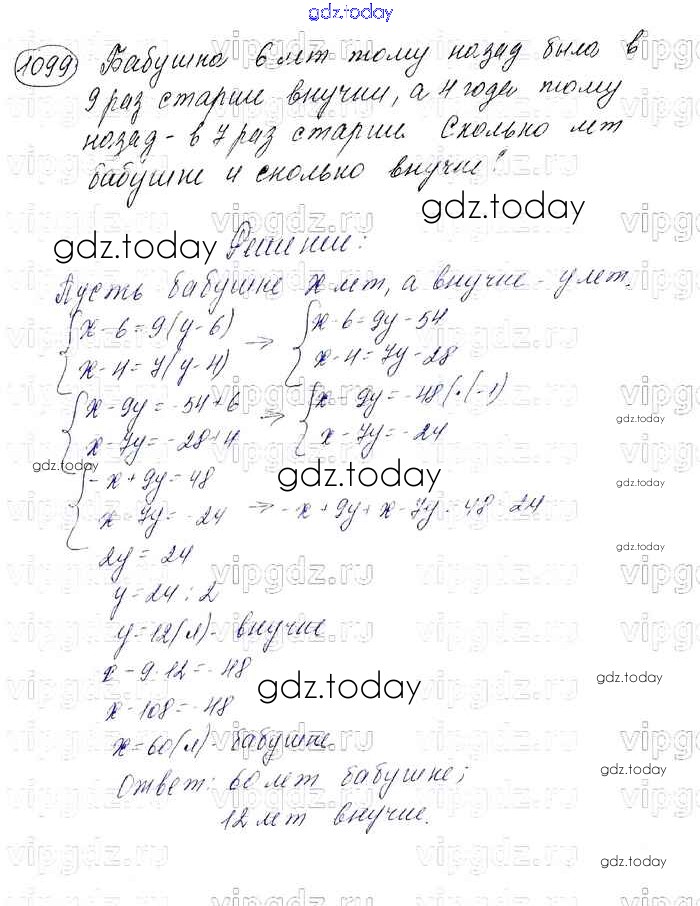 gdz.today
1099) Бабушка 6 лет тому назад была в
9 раз старше внучки, а 4 года тому
назад - в 7 раз старше. Сколько лет
бабушке и сколько внучке?
gdz.today
gdz.today Решение:
Пусть бабушке x лет, а внучке - y лет.
{x-6=9(y-6) → {x-6=9y-54
{x-4=7(y-4) {x-4=7y-28
{x-9y=-54+6 → {x-9y=-48 |·(-1)
gdz.today
{x-7y=-28+4 {x-7y=-24
gdz.today
gdz.today
{-x+9y=48
gdz.today
gdz.today
{x-7y=-24 → -x+9y+x-7y=48-24
2y=24
gdz.today
y=24:2
y=12(л)- внучке
x-9·12=-48
gdz.today
gdz.today
x-108=-48
x=60(л)- бабушке
gdz.today
Ответ: 60 лет бабушке;
12 лет внучке.
gdz.today
vipgdz.ru